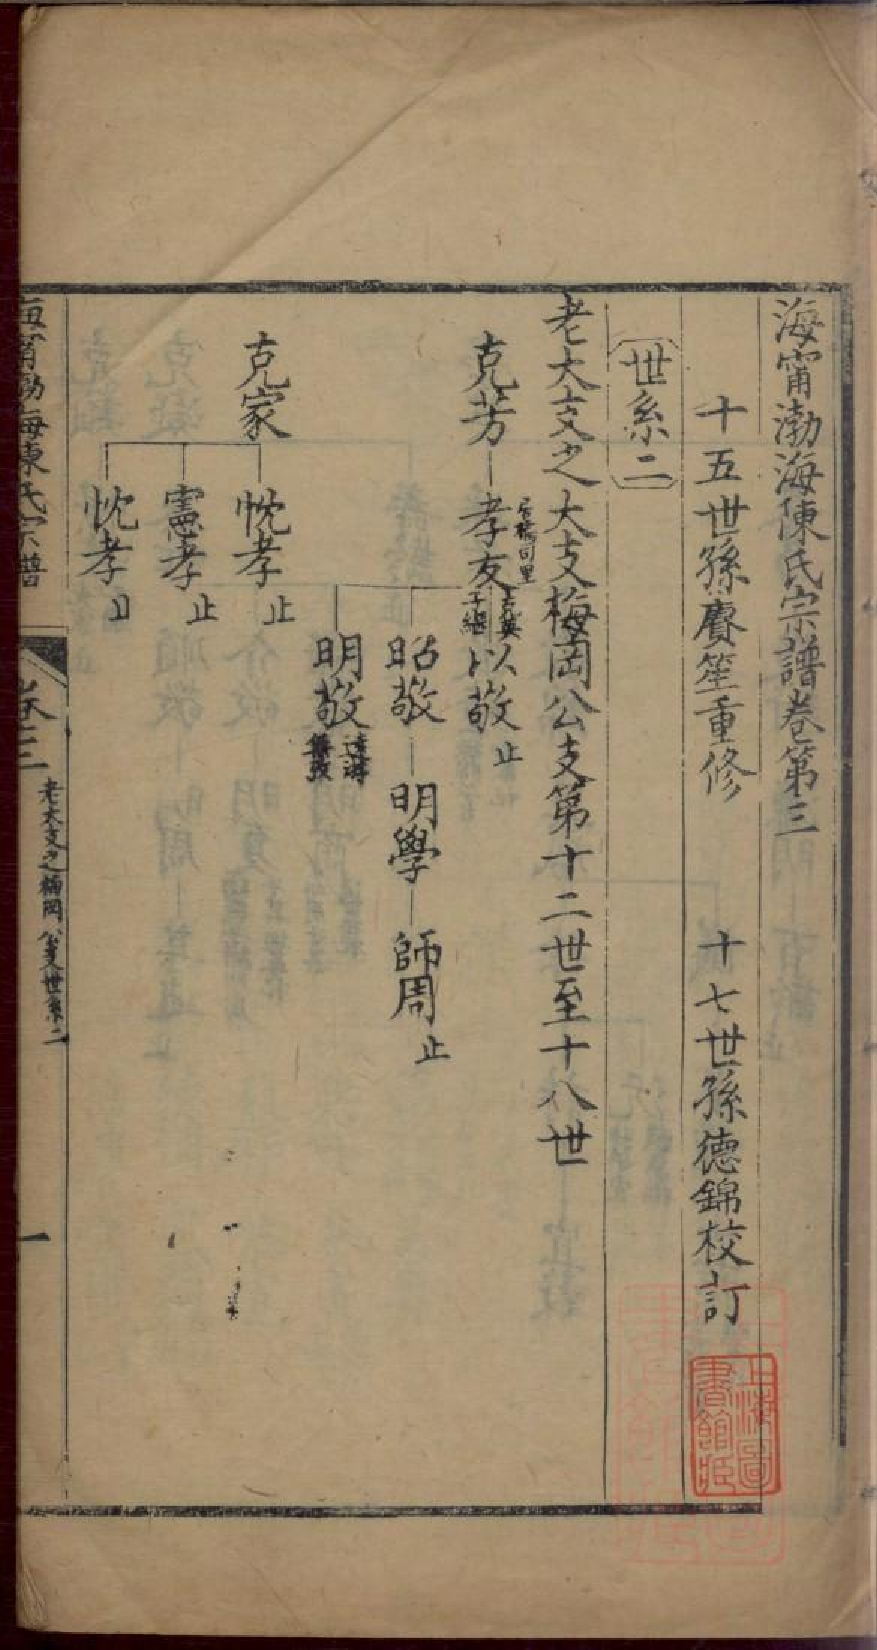 海甯渤海陳氏宗譜卷第三
十五世孫賡笙重修　十七世孫德錦校訂
世系二
老大支之大支梅岡公支第十二世至十八世
克芳　孝友　以敬　止
昭敬　明學　師周　止
明敬
克家　忱孝　止
憲孝　止
忱孝
海甯渤海陳氏宗譜　卷三　老大支之梅岡公支世系二　一
上海圖書館藏